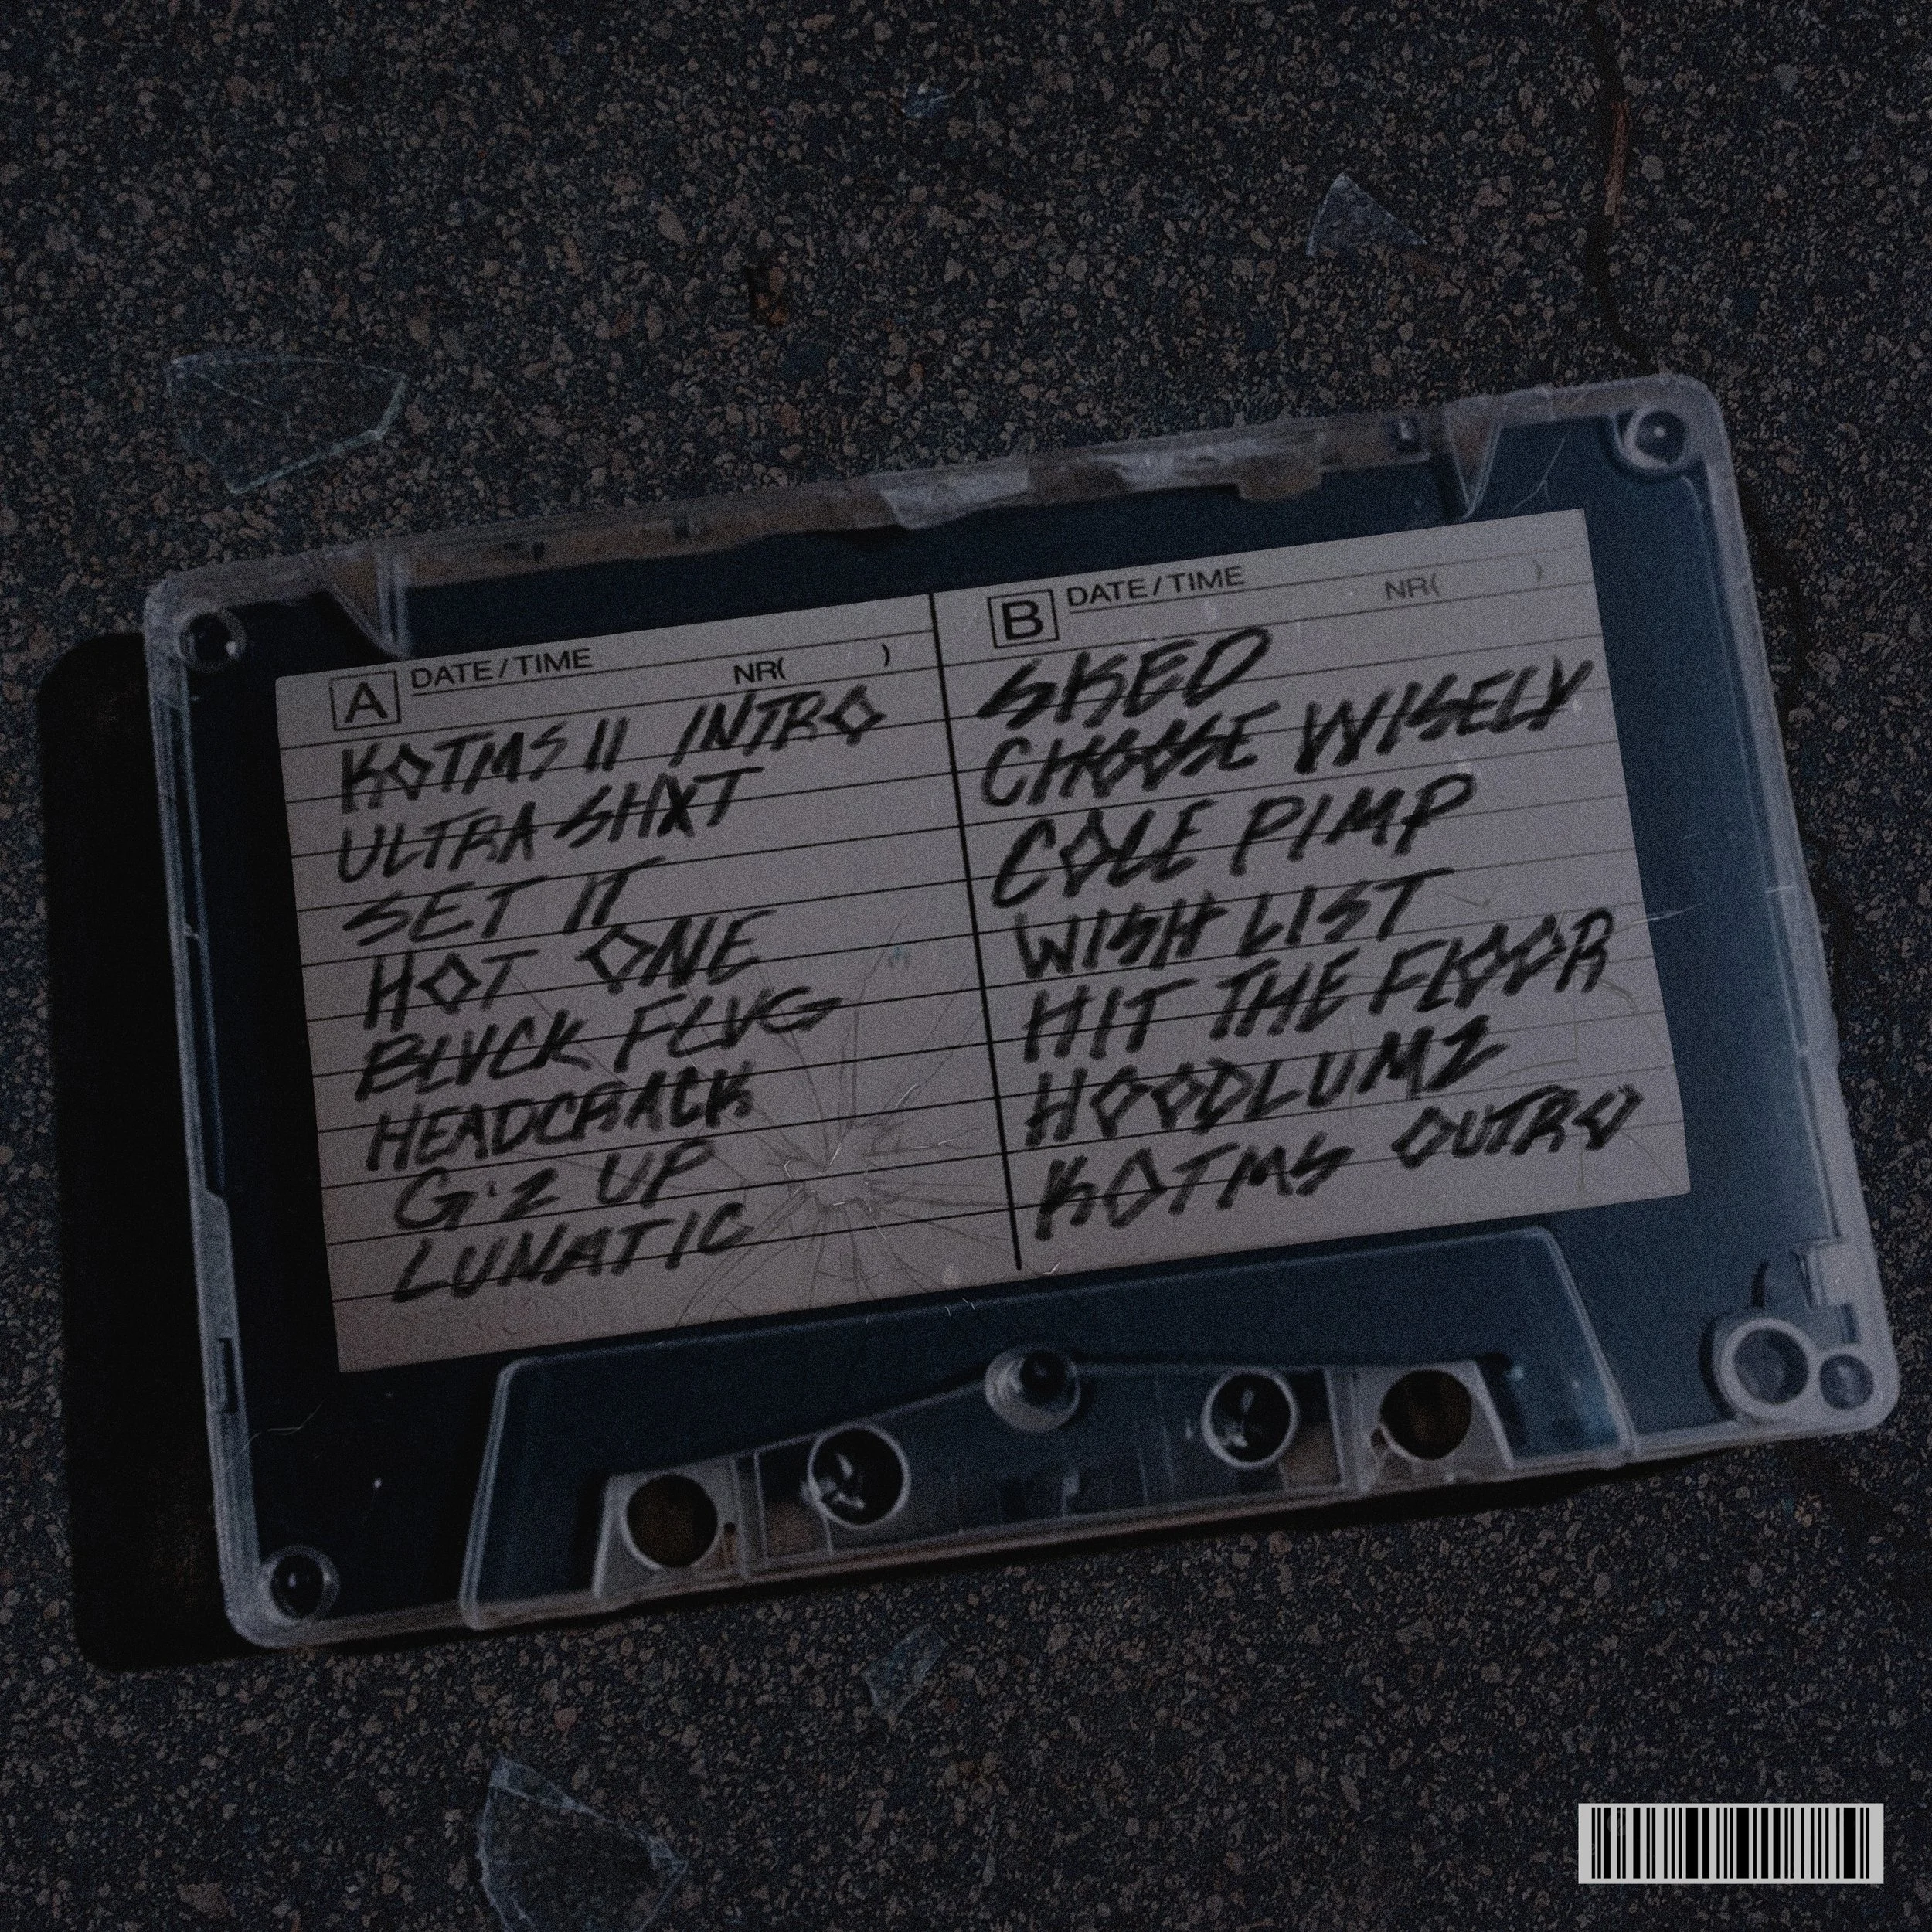 A DATE/TIME
NR( )
KOTMS II INTRO
ULTRA SHXT
SET IT
HOT ONE
BLVCK FLVG
HEADCRACK
G'Z UP
LUNATIC
B DATE/TIME
NR( )
SKED
CHOOSE WISELY
COLE PIMP
WISH LIST
HIT THE FLOOR
HOODLUMZ
KOTMS OUTRO